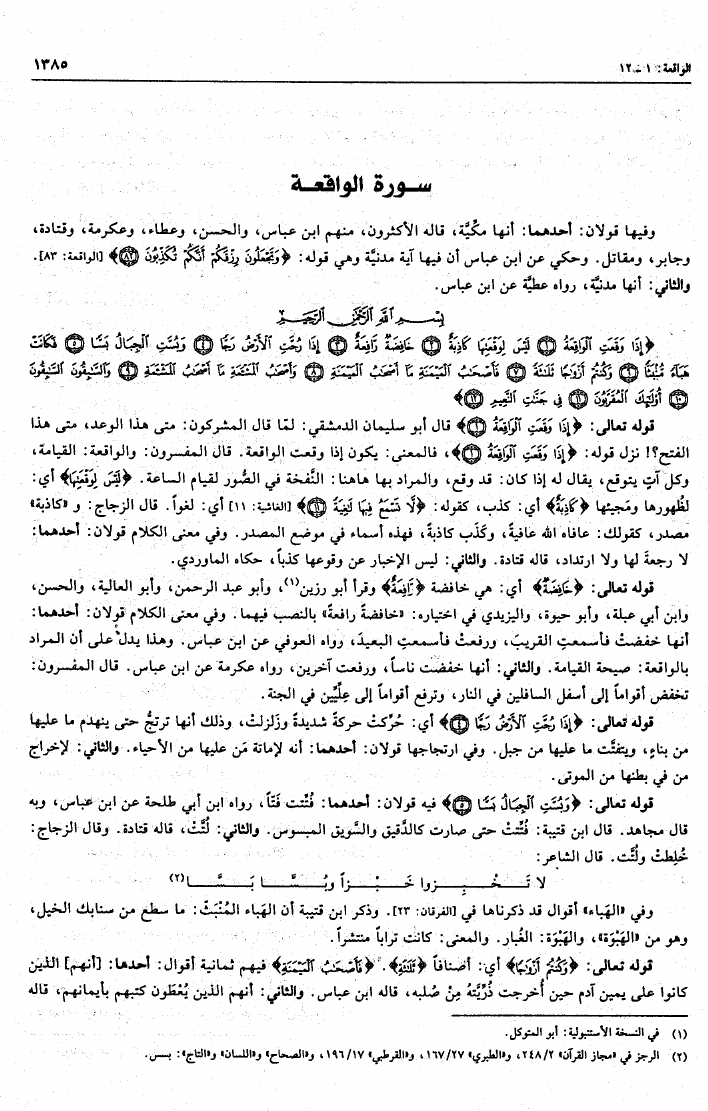 الواقعة: ١ ـ ١٢
١٣٨٥
سـورة الواقعـة
وفيها قولان: أحدهما: أنها مكِّيَّة، قاله الأكثرون، منهم ابن عباس، والحسن، وعطاء، وعكرمة، وقتادة،
وجابر، ومقاتل. وحكي عن ابن عباس أن فيها آية مدنيَّة وهي قوله: ﴿وَتَجْعَلُونَ رِزْقَكُمْ أَنَّكُمْ تُكَذِّبُونَ ﴿٨٢﴾﴾ [الواقعة: ٨٣].
والثاني: أنها مدنيَّة، رواه عطيَّة عن ابن عباس.
بِسْمِ اللَّهِ الرَّحْمَٰنِ الرَّحِيمِ
﴿إِذَا وَقَعَتِ ٱلْوَاقِعَةُ ﴿١﴾ لَيْسَ لِوَقْعَتِهَا كَاذِبَةٌ ﴿٢﴾ خَافِضَةٌ رَّافِعَةٌ ﴿٣﴾ إِذَا رُجَّتِ ٱلْأَرْضُ رَجًّا ﴿٤﴾ وَبُسَّتِ ٱلْجِبَالُ بَسًّا ﴿٥﴾ فَكَانَتْ
هَبَآءً مُّنۢبَثًّا ﴿٦﴾ وَكُنتُمْ أَزْوَٰجًا ثَلَٰثَةً ﴿٧﴾ فَأَصْحَٰبُ ٱلْمَيْمَنَةِ مَآ أَصْحَٰبُ ٱلْمَيْمَنَةِ ﴿٨﴾ وَأَصْحَٰبُ ٱلْمَشْـَٔمَةِ مَآ أَصْحَٰبُ ٱلْمَشْـَٔمَةِ ﴿٩﴾ وَٱلسَّٰبِقُونَ ٱلسَّٰبِقُونَ
﴿١٠﴾ أُوْلَٰٓئِكَ ٱلْمُقَرَّبُونَ ﴿١١﴾ فِى جَنَّٰتِ ٱلنَّعِيمِ ﴿١٢﴾﴾
قوله تعالى: ﴿إِذَا وَقَعَتِ ٱلْوَاقِعَةُ ﴿١﴾﴾ قال أبو سليمان الدمشقي: لمّا قال المشركون: متى هذا الوعد، متى هذا
الفتح؟! نزل قوله: ﴿إِذَا وَقَعَتِ ٱلْوَاقِعَةُ ﴿١﴾﴾، فالمعنى: يكون إذا وقعت الواقعة. قال المفسرون: والواقعة: القيامة،
وكل آتٍ يتوقع، يقال له إذا كان: قد وقع، والمراد بها هاهنا: النَّفخة في الصُّور لقيام الساعة. ﴿لَيْسَ لِوَقْعَتِهَا﴾ أي:
لظُهورها ومَجيئها ﴿كَاذِبَةٌ﴾ أي: كذب، كقوله: ﴿لَّا تَسْمَعُ فِيهَا لَٰغِيَةً ﴿١١﴾﴾ [الغاشية: ١١] أي: لغواً. قال الزجاج: و «كاذبة»
مصدر، كقولك: عافاه الله عافيةً، وكَذَب كاذبةً، فهذه أسماء في موضع المصدر. وفي معنى الكلام قولان: أحدهما:
لا رجعةَ لها ولا ارتداد، قاله قتادة. والثاني: ليس الإخبار عن وقوعها كذباً، حكاه الماوردي.
قوله تعالى: ﴿خَافِضَةٌ﴾ أي: هي خافضة ﴿رَّافِعَةٌ﴾ وقرأ أبو رزين(١)، وأبو عبد الرحمن، وأبو العالية، والحسن،
وابن أبي عبلة، وأبو حيوة، واليزيدي في اختياره: «خافضةً رافعةً» بالنصب فيهما. وفي معنى الكلام قولان: أحدهما:
أنها خفضتْ فأسمعتِ القريبَ، ورفعتْ فأسمعتِ البعيدَ، رواه العوفي عن ابن عباس. وهذا يدل على أن المراد
بالواقعة: صيحة القيامة. والثاني: أنها خفضت ناساً، ورفعت آخرين، رواه عكرمة عن ابن عباس. قال المفسرون:
تخفض أقواماً إلى أسفل السافلين في النار، وترفع أقواماً إلى عِلِّيِّين في الجنة.
قوله تعالى: ﴿إِذَا رُجَّتِ ٱلْأَرْضُ رَجًّا ﴿٤﴾﴾ أي: حُرِّكتْ حركةً شديدةً وزلزلتْ، وذلك أنها ترتجُّ حتى ينهدم ما عليها
من بناءٍ، ويتفتَّت ما عليها من جبل. وفي ارتجاجها قولان: أحدهما: أنه لإماتة مَن عليها من الأحياء. والثاني: لإخراج
من في بطنها من الموتى.
قوله تعالى: ﴿وَبُسَّتِ ٱلْجِبَالُ بَسًّا ﴿٥﴾﴾ فيه قولان: أحدهما: فُتِّتت فَتّاً، رواه ابن أبي طلحة عن ابن عباس، وبه
قال مجاهد. قال ابن قتيبة: فُتِّتتْ حتى صارت كالدَّقيق والسَّويق المبسوس. والثاني: لُتَّتْ، قاله قتادة. وقال الزجاج:
خُلِطتْ ولُتَّت. قال الشاعر:
لا تَـخْـبِـزوا خَـبْـزاً وبُـسَّـا بَـسَّـا(٢)
وفي «الهَباء» أقوال قد ذكرناها في [الفرقان: ٢٣]. وذكر ابن قتيبة أن الهَباء المُنْبَثّ: ما سطع من سنابك الخيل،
وهو من «الهَبْوَة»، والهَبْوَة: الغُبار. والمعنى: كانت تراباً منتشراً.
قوله تعالى: ﴿وَكُنتُمْ أَزْوَٰجًا﴾ أي: أصنافاً ﴿ثَلَٰثَةً﴾. ﴿فَأَصْحَٰبُ ٱلْمَيْمَنَةِ﴾ فيهم ثمانية أقوال: أحدها: [أنهم] الذين
كانوا على يمين آدم حين أُخرجت ذُرِّيَّتهُ مِنْ صُلبه، قاله ابن عباس. والثاني: أنهم الذين يُعْطَون كتبهم بأيمانهم، قاله
(١) في النسخة الأستنبولية: أبو المتوكل.
(٢) الرجز في «مجاز القرآن» ٢/ ٢٤٨، و«الطبري» ٢٧/ ١٦٧، و«القرطبي» ١٧/ ١٩٦، و«الصحاح» و«اللسان» و«التاج»: بسس.